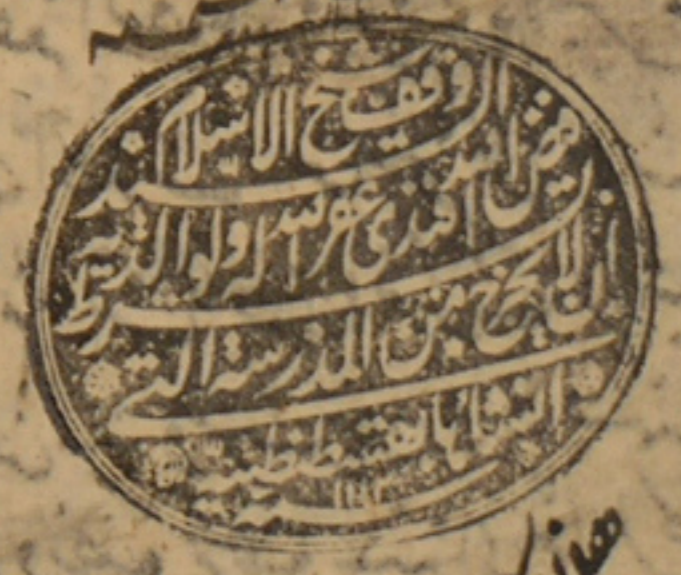 وقف شيخ الاسلام السيد
فيض الله افندى غفر الله له ولوالديه
بشرط ان لا يخرج من المدرسة التي
انشاها بقسطنطينية
سنة